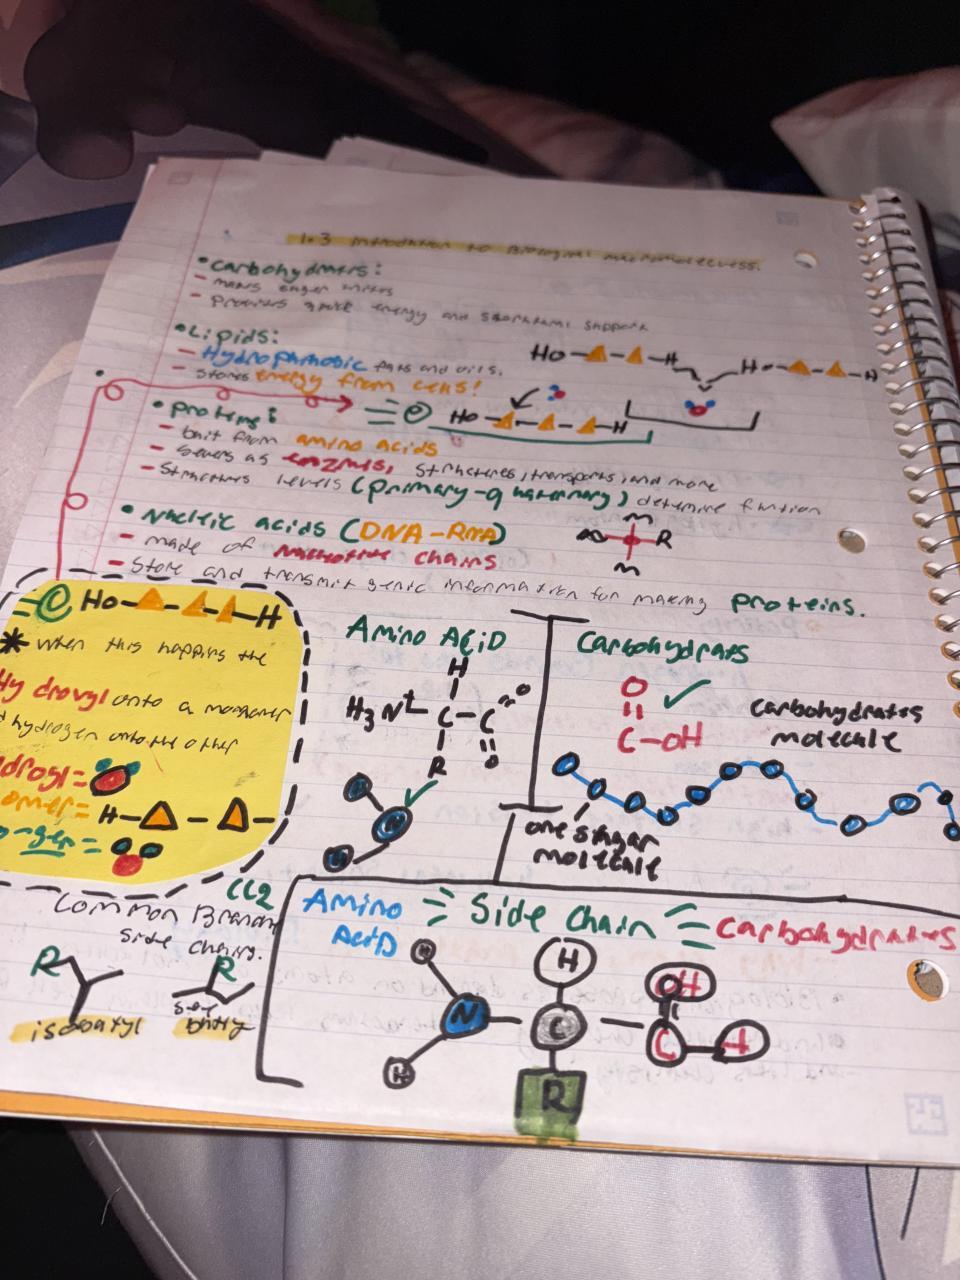 1.3 Introduction to Biological macromolecules.
• Carbohydrates:
- 
- Provides quick energy and support
• Lipids:
- Hydrophobic fats and oils.
- Stores energy from cells!
Ho H Ho H
• Proteins:
e Ho H
- built from amino acids
- serves as enzymes, structures, transports, and more
- Structures levels (primary-quaternary) determine function
• Nucleic acids (DNA-RNA)
- made of chains
- Store and transmit information for making proteins.
R
e Ho H
* when this happins the
Hydroxyl onto a monomer
hydrogen onto the other
=
= H
=
Amino Acid
H
H3N+ C C O
R O
Carbohydrats
O
C-OH
carbohydrates
molecule
one sugar
molecule
CC2
Common Branch
side chains.
R R
isobutyl
Amino Acid = Side Chain = Carbohydrates
H H OH
N C C H
H R